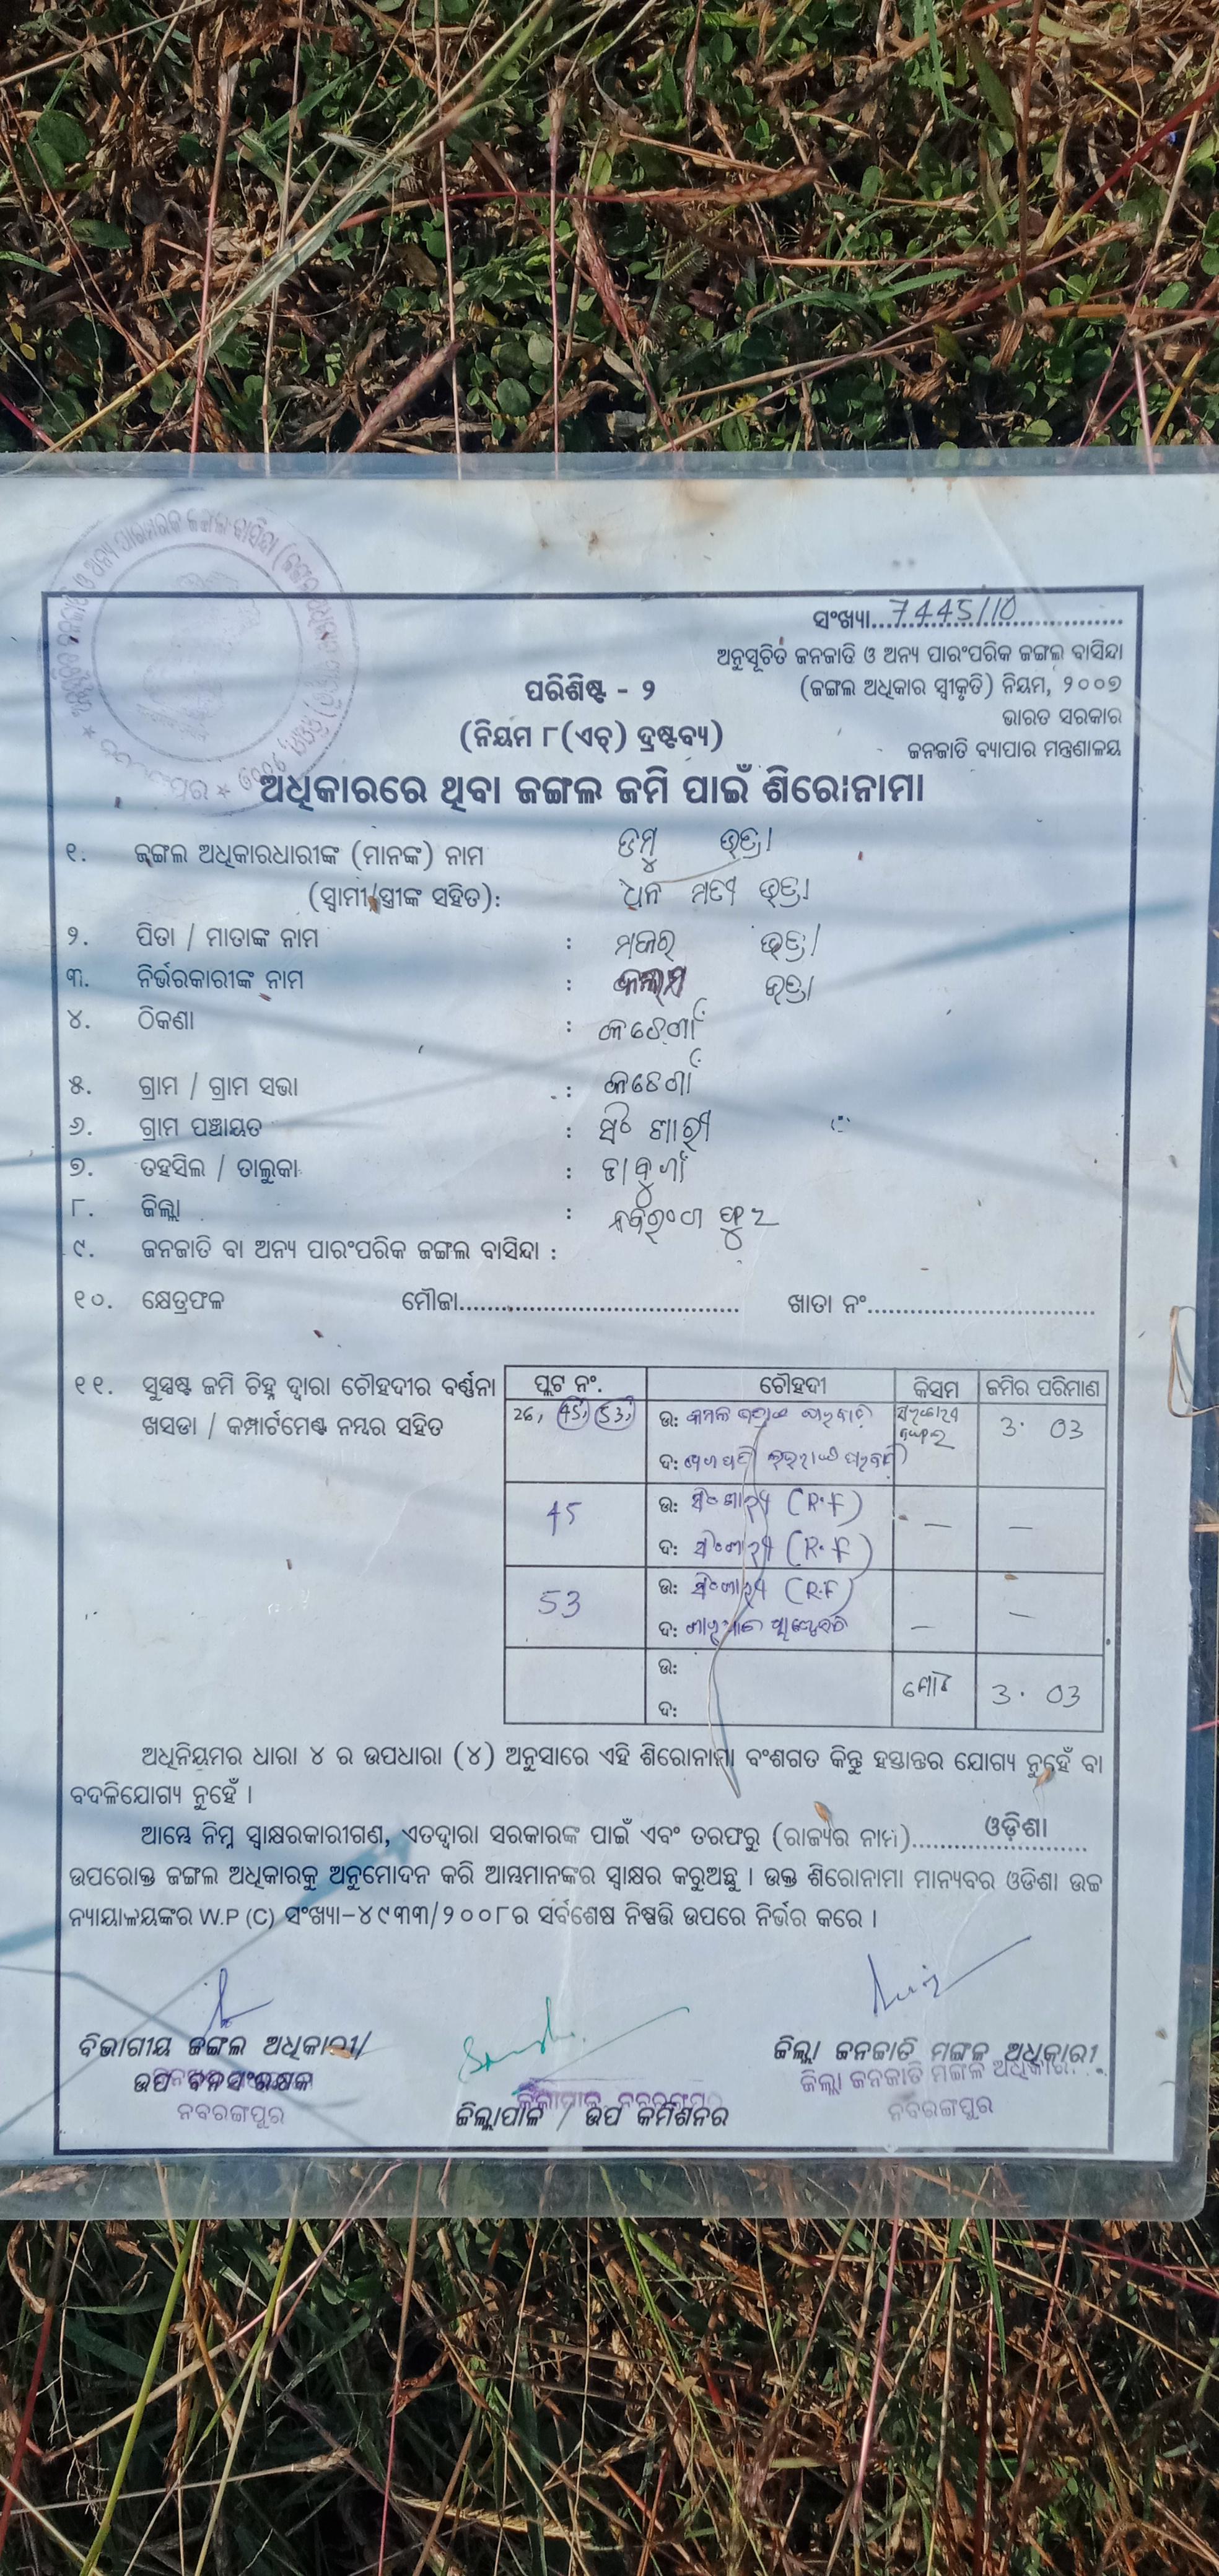 ସଂଖ୍ୟା...7445/10...
ଅନୁସୂଚିତ ଜନଜାତି ଓ ଅନ୍ୟ ପାରଂପରିକ ଜଙ୍ଗଲ ବାସିନ୍ଦା
(ଜଙ୍ଗଲ ଅଧିକାର ସ୍ୱୀକୃତି) ନିୟମ, ୨୦୦୭
ଭାରତ ସରକାର
ଜନଜାତି ବ୍ୟାପାର ମନ୍ତ୍ରଣାଳୟ
ପରିଶିଷ୍ଟ - ୨
(ନିୟମ ୮(ଏଚ୍) ଦ୍ରଷ୍ଟବ୍ୟ)
ଅଧିକାରରେ ଥିବା ଜଙ୍ଗଲ ଜମି ପାଇଁ ଶିରୋନାମା
୧. ଜଙ୍ଗଲ ଅଧିକାରଧାରୀଙ୍କ (ମାନଙ୍କ) ନାମ ଡମ୍ବୁ ଭତ୍ରା
(ସ୍ୱାମୀ/ସ୍ତ୍ରୀଙ୍କ ସହିତ): ଧନ ମତୀ ଭତ୍ରା
୨. ପିତା / ମାତାଙ୍କ ନାମ : ମକର ଭତ୍ରା
୩. ନିର୍ଭରକାରୀଙ୍କ ନାମ : ଭତ୍ରା
୪. ଠିକଣା :
୫. ଗ୍ରାମ / ଗ୍ରାମ ସଭା :
୬. ଗ୍ରାମ ପଞ୍ଚାୟତ : ସିଂସାରୀ
୭. ତହସିଲ / ତାଲୁକା : ଡାବୁଗାଁ
୮. ଜିଲ୍ଲା : ନବରଂଗପୁର
୯. ଜନଜାତି ବା ଅନ୍ୟ ପାରଂପରିକ ଜଙ୍ଗଲ ବାସିନ୍ଦା :
୧୦. କ୍ଷେତ୍ରଫଳ ମୌଜା........ ଖାତା ନଂ........
୧୧. ସୁସ୍ପଷ୍ଟ ଜମି ଚିହ୍ନ ଦ୍ୱାରା ଚୌହଦୀର ବର୍ଣ୍ଣନା
ଖସଡା / କମ୍ପାର୍ଟମେଣ୍ଟ ନମ୍ବର ସହିତ
ପ୍ଲଟ ନଂ. ଚୌହଦୀ କିସମ ଜମିର ପରିମାଣ
26, 45, 53, ଉ: 3. 03
ଦ:
45 ଉ: ସିଂସାରୀ (R.F) — —
ଦ: ସିଂସାରୀ (R.F)
53 ଉ: ସିଂସାରୀ (R.F) — —
ଦ:
ଉ: ମୋଟ 3. 03
ଦ:
ଅଧିନିୟମର ଧାରା ୪ ର ଉପଧାରା (୪) ଅନୁସାରେ ଏହି ଶିରୋନାମା ବଂଶଗତ କିନ୍ତୁ ହସ୍ତାନ୍ତର ଯୋଗ୍ୟ ନୁହେଁ ବା
ବଦଳିଯୋଗ୍ୟ ନୁହେଁ ।
ଆମ୍ଭେ ନିମ୍ନ ସ୍ୱାକ୍ଷରକାରୀଗଣ, ଏତଦ୍ୱାରା ସରକାରଙ୍କ ପାଇଁ ଏବଂ ତରଫରୁ (ରାଜ୍ୟର ନାମ)........ଓଡ଼ିଶା........
ଉପରୋକ୍ତ ଜଙ୍ଗଲ ଅଧିକାରକୁ ଅନୁମୋଦନ କରି ଆମ୍ଭମାନଙ୍କର ସ୍ୱାକ୍ଷର କରୁଅଛୁ । ଉକ୍ତ ଶିରୋନାମା ମାନ୍ୟବର ଓଡିଶା ଉଚ୍ଚ
ନ୍ୟାୟାଳୟଙ୍କର W.P (C) ସଂଖ୍ୟା-୪୯୩୩/୨୦୦୮ର ସର୍ବଶେଷ ନିଷ୍ପତ୍ତି ଉପରେ ନିର୍ଭର କରେ ।
ବିଭାଗୀୟ ଜଙ୍ଗଲ ଅଧିକାରୀ/
ଉପ ବନସଂରକ୍ଷକ
ନବରଙ୍ଗପୁର
ଜିଲ୍ଲାପାଳ / ଉପ କମିଶନର
ଜିଲ୍ଲା ଜନଜାତି ମଙ୍ଗଳ ଅଧିକାରୀ
ଜିଲ୍ଲା ଜନଜାତି ମଙ୍ଗଳ ଅଧିକାରୀ
ନବରଙ୍ଗପୁର